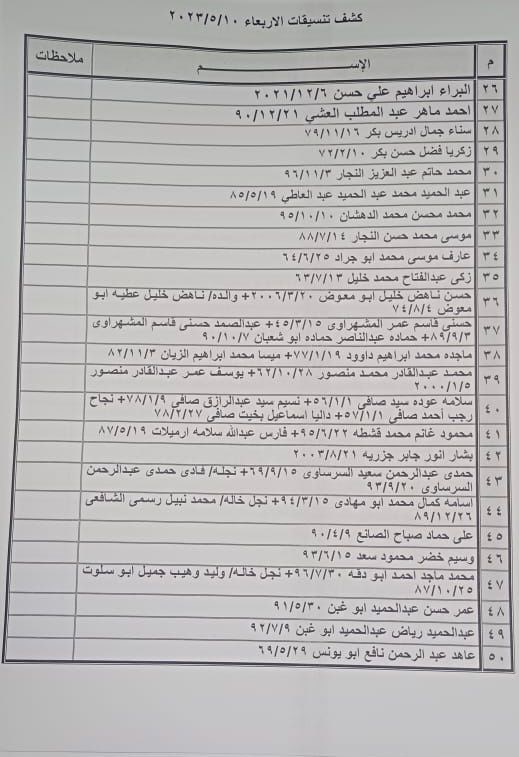 كشف تنسيقات الاربعاء ٢٠٢٣/٥/١٠
م الإســـــــــــم ملاحظات
٢٦ البراء ابراهيم علي حسن ٢٠٢١/١٢/٦
٢٧ احمد ماهر عبد المطلب العشي ٩٠/١٢/٢١
٢٨ سناء جمال ادريس بكر ٧٩/١١/١٦
٢٩ زكريا فضل حسن بكر ٧٢/٢/١٠
٣٠ محمد حاتم عبد العزيز النجار ٩٦/١١/٣
٣١ عبد الحميد محمد عبد الحميد عبد العاطي ٨٥/٥/١٩
٣٢ محمد محسن محمد الدهشان ٩٥/١٠/١٠
٣٣ موسى محمد حسن النجار ٨٨/٧/١٤
٣٤ عارف موسى محمد ابو جراد ٦٤/٦/٢٥
٣٥ زكى عبدالفتاح محمد خليل ٦٣/٧/١٣
٣٦ حسن ناهض خليل ابو معوض ٢٠٠٦/٣/٢٠+ والده/ ناهض خليل عطيه ابو
معوض ٧٤/٨/٤
٣٧ حسنى قاسم عمر المشهراوى ٤٥/٣/١٥+ عبدالصمد حسنى قاسم المشهراوى
٨٩/٩/٣+ حماده عبدالناصر حماده ابو شعبان ٩٠/١٠/٧
٣٨ ماجده محمد ابراهيم داوود ٧٧/١/١٩+ ميسا محمد ابراهيم الزيان ٨٢/١١/٣
٣٩ محمد عبدالقادر محمد منصور ٦٢/١٠/٢٨+ يوسف عمر عبدالقادر منصور
٢٠٠٠/١/٥
٤٠ سلامه عوده سيد صافي ٥٦/١/١+ نسيم سيد عبدالرازق صافي ٧٨/١/٩+ نجاح
رجب أحمد صافي ٥٧/١/١+ داليا اسماعيل بخيت صافي ٧٨/٢/٢٧
٤١ محمود غانم محمد قشطه ٩٥/٦/٢٢+ فارس عبدالله سلامه ارميلات ٨٧/٥/١٩
٤٢ بشار انور جابر جزريه ٢٠٠٣/٨/٢١
٤٣ حمدى عبدالرحمن سعيد السرساوى ٦٩/٩/١٥+ نجله/ فادى حمدى عبدالرحمن
السرساوى ٩٣/٩/٢٠
٤٤ اسامه كمال محمد ابو مهادى ٩٤/٣/١٥+ نجل خاله/ محمد نبيل رسمى الشافعى
٨٩/١٢/٢٦
٤٥ على حماد صباح الصانع ٩٠/٤/٩
٤٦ وسيم خضر محمود سعد ٩٣/٦/١٥
٤٧ محمد ماجد احمد ابو دقه ٩٦/٧/٣٠+ نجل خاله/ وليد وهيب جميل ابو سلوت
٨٧/١٠/٢٥
٤٨ عمر حسن عبدالحميد ابو غبن ٩١/٥/٣٠
٤٩ عبدالحميد رياض عبدالحميد ابو غبن ٩٢/٧/٩
٥٠ عاهد عبد الرحمن نافع ابو يونس ٦٩/٥/٢٩